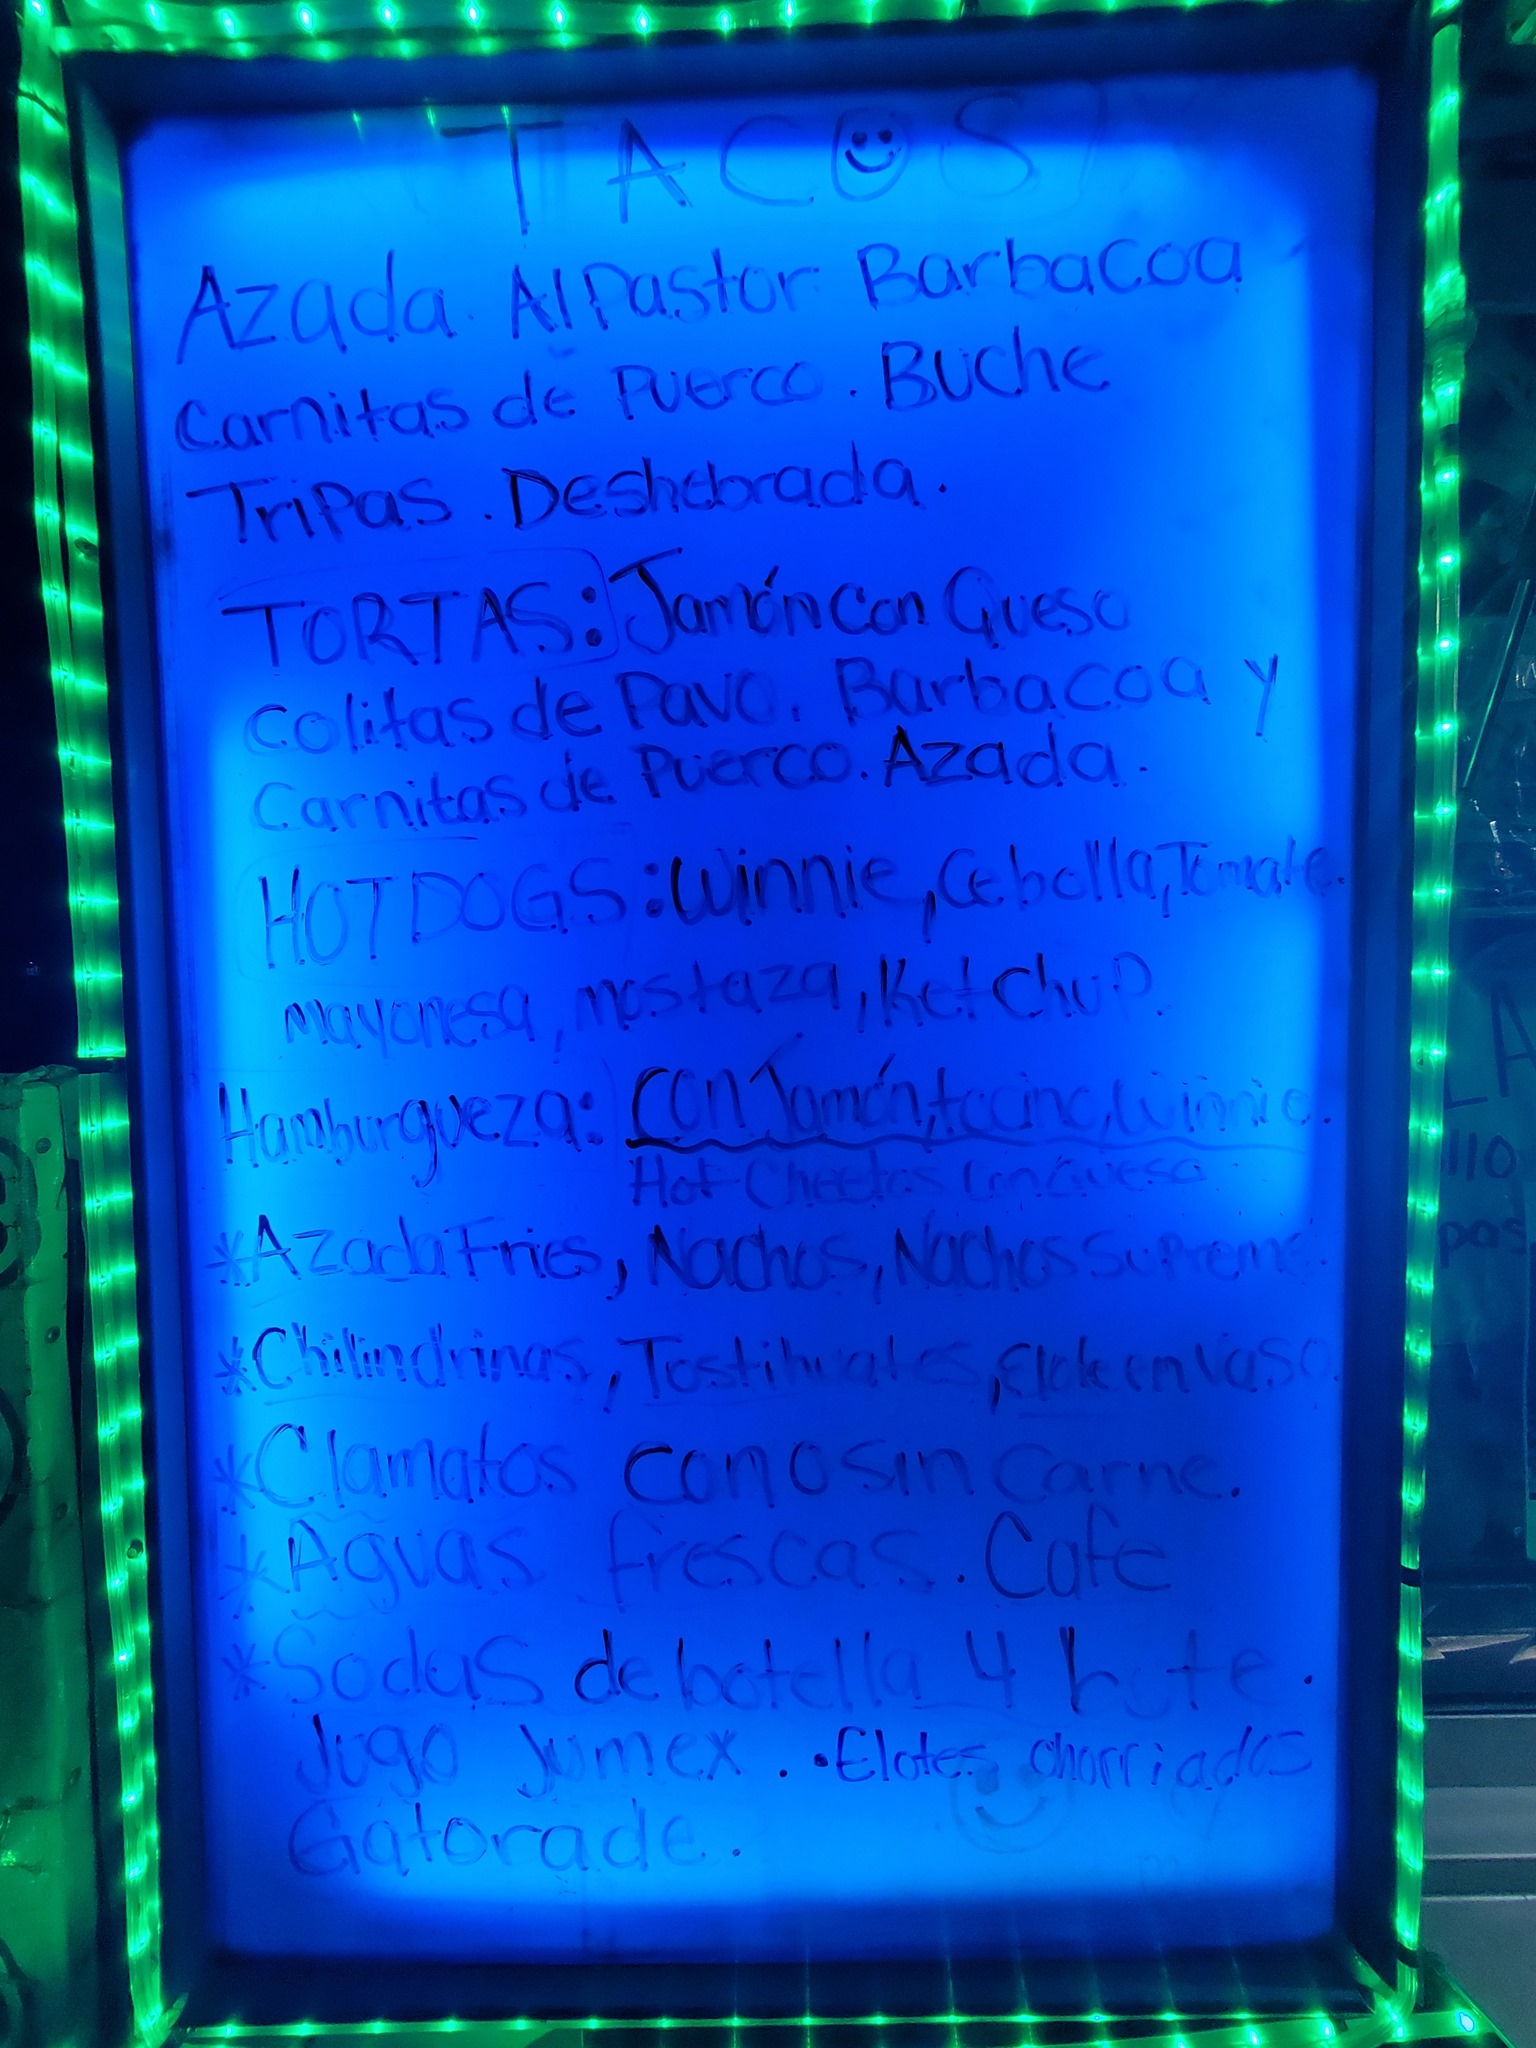 TACOS
Azada. Al Pastor Barbacoa
Carnitas de Puerco. Buche
Tripas. Deshebrada.
TORTAS: Jamón Con Queso
Colitas de Pavo. Barbacoa y
Carnitas de Puerco. Azada.
HOT DOGS: Winnie, Cebolla, Tomate.
mayonesa, mostaza, Ketchup.
Hamburgueza: Con Jamón, tocino, Winnie.
Hot Cheetos Con Queso
*Azada Fries, Nachos, Nachos Supreme.
*Chilindrinas, Tostihuates, Elote en Vaso.
*Clamatos con o sin Carne.
*Aguas frescas. Cafe
*Sodas de botella y bote.
Jugo Jumex. •Elotes chorriados
Gatorade.